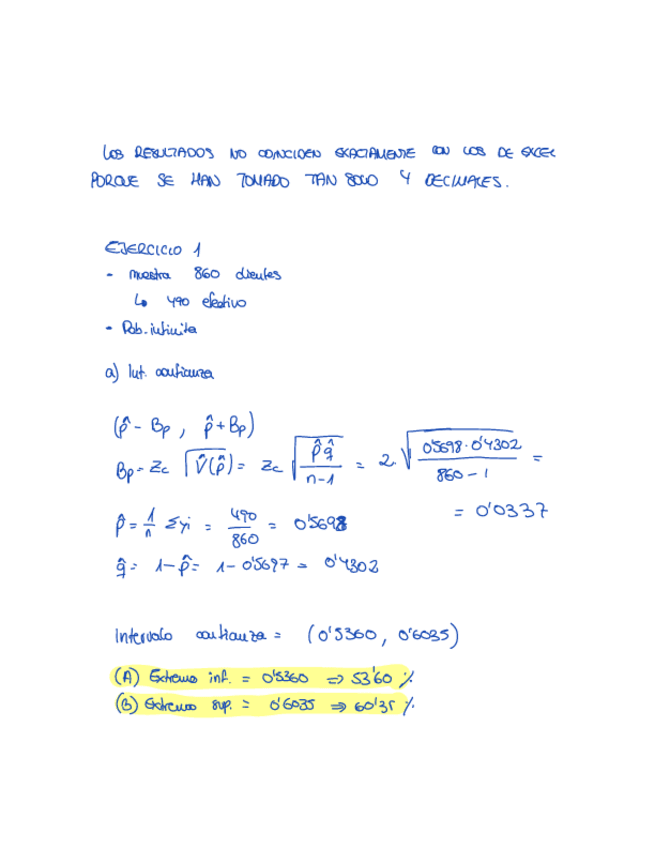 LOS RESULTADOS NO COINCIDEN EXACTAMENTE CON LOS DE EXCEL
PORQUE SE HAN TOMADO TAN SOLO 4 DECIMALES.
EJERCICIO 1
- muestra 860 clientes
↳ 490 efectivo
- Pob. infinita
a) Int. confianza
(p̂ - Bp , p̂ + Bp)
Bp = Zc √V̂(p̂) = Zc √(p̂ q̂ / n-1) = 2· √(0'5698 · 0'4302 / 860 - 1) =
= 0'0337
p̂ = 1/n Σyi = 490/860 = 0'5698
q̂ = 1 - p̂ = 1 - 0'5697 = 0'4302
Intervalo confianza = (0'5360, 0'6035)
(A) Extremo inf. = 0'5360 ⇒ 53'60 %
(B) Extremo sup. = 0'6035 ⇒ 60'35 %